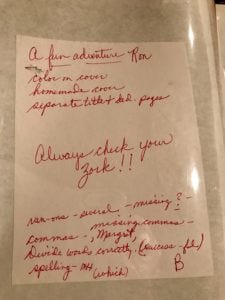 A fun adventure Ron
color on cover
homemade cover
separate title & ded. pages
Always check your
work!!
run-ons - several - missing ? -
commas - missing commas -
, Margret,
Divide words correctly. (success-ful)
spelling - (which)
B